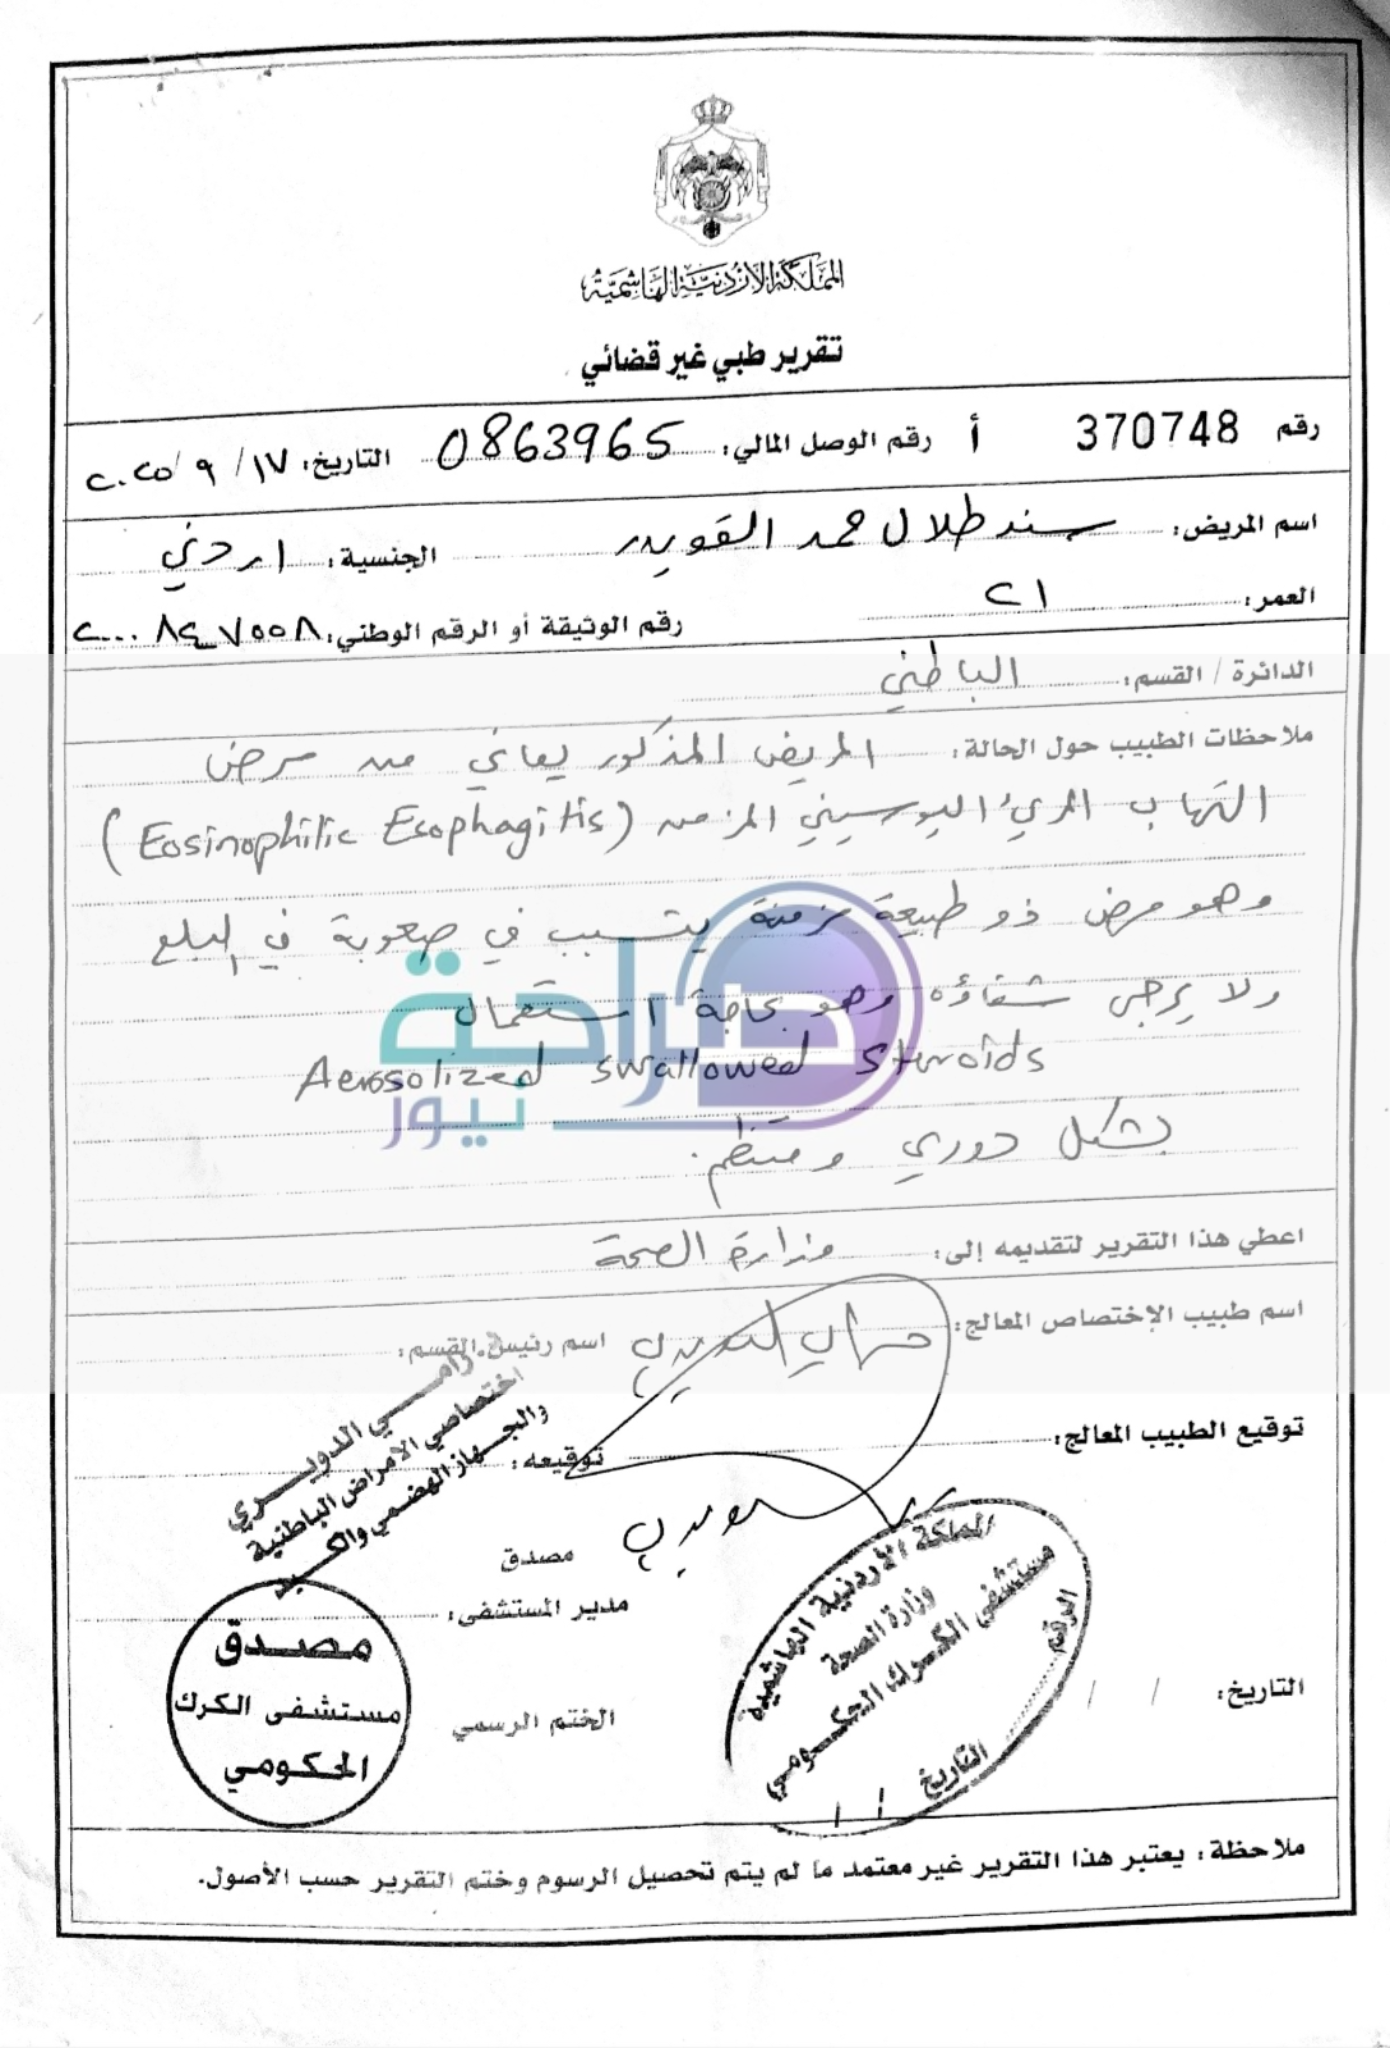 المملكة الأردنية الهاشمية
تقرير طبي غير قضائي
رقم 370748 أ رقم الوصل المالي: 0863965 التاريخ: ١٧ / ٩ / ٢٠٢٥
اسم المريض: سند طلال حمد القويدر الجنسية: اردني
العمر: ٢١ رقم الوثيقة أو الرقم الوطني: ٢٠٠٠٨٤٧٥٥٨
الدائرة / القسم: الباطني
ملاحظات الطبيب حول الحالة: المريض المذكور يعاني من مرض
التهاب المريء اليوسيني المزمن (Eosinophilic Esophagitis)
وهو مرض ذو طبيعة مزمنة يتسبب في صعوبة في البلع
ولا يرجى شفاؤه وهو بحاجة استعمال
Aerosolized swallowed
بشكل دوري ومنتظم.
صراحة
نيوز
اعطي هذا التقرير لتقديمه إلى: وزارة الصحة
اسم طبيب الإختصاص المعالج: اسم رئيس القسم:
رامي الدويري
اختصاصي الامراض الباطنية
والجهاز الهضمي والكبد
توقيع الطبيب المعالج: توقيعه:
مصدق
مدير المستشفى:
المملكة الأردنية الهاشمية
وزارة الصحة
مستشفى الكرك الحكومي
الرقم
التاريخ / /
التاريخ: / /
الختم الرسمي
مصدق
مستشفى الكرك
الحكومي
ملاحظة: يعتبر هذا التقرير غير معتمد ما لم يتم تحصيل الرسوم وختم التقرير حسب الأصول.